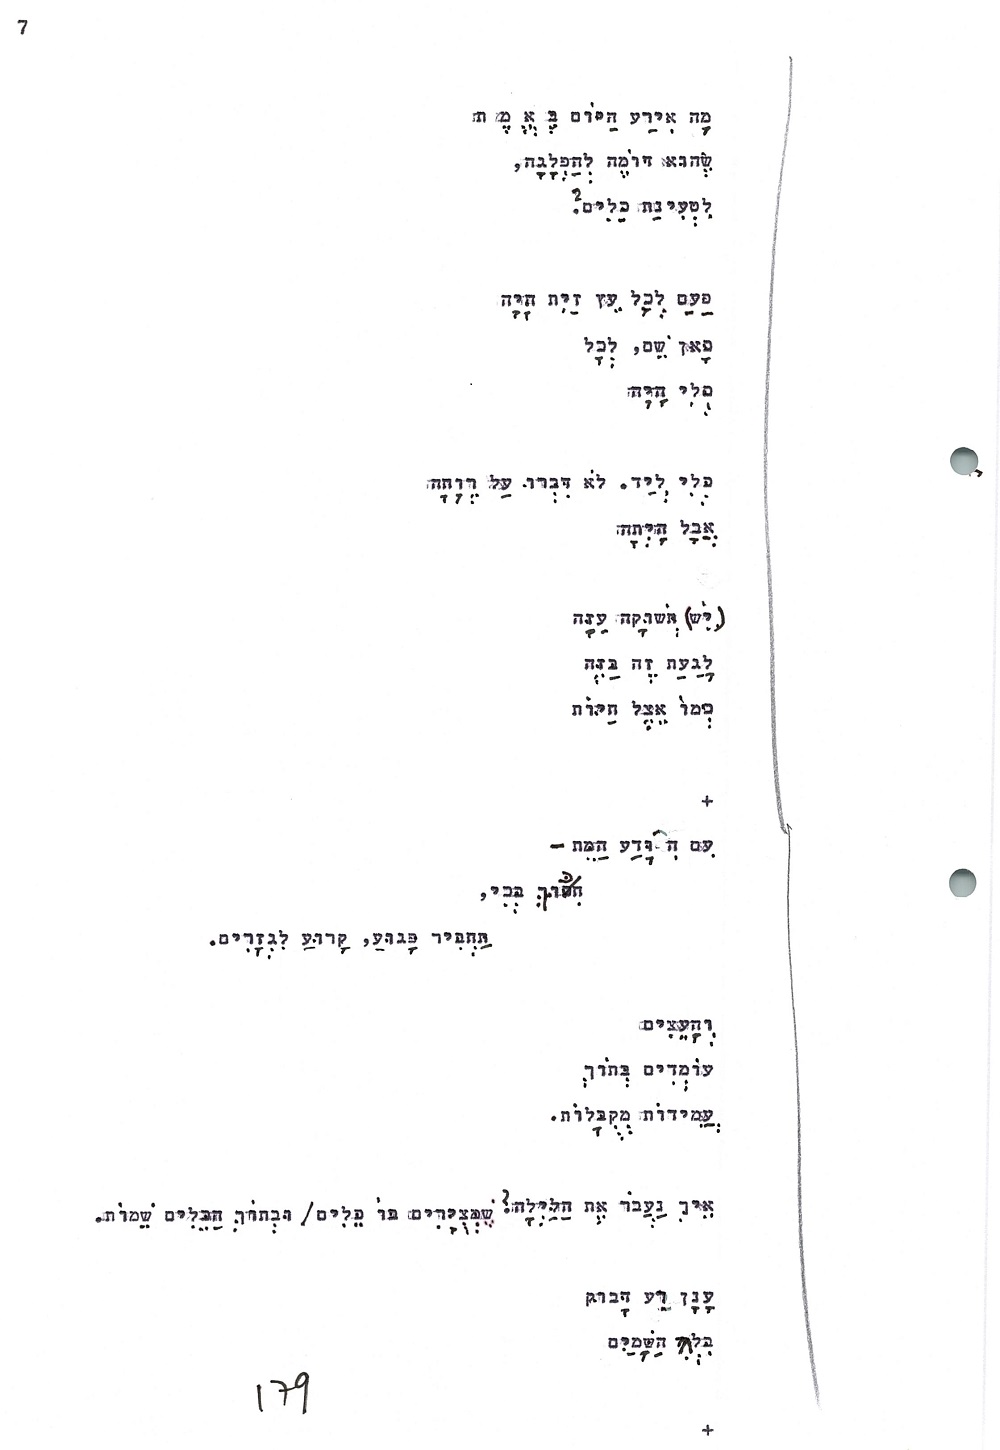 7
מָה אִירַע הַיּוֹם בֶּ אֱ מֶ ת
שֶׁהוּא דּוֹמֶה לְהַפְלָגָה,
לִטְעִינַת כֵּלִים?
פַּעַם לְכָל עֵץ זַיִת הָיָה
כָּאן שֵׁם, לְכָל
כְּלִי הָיָה
כְּלִי לְיַד. לֹא דִּבְּרוּ עַל רְוָחָה
אֲבָל הָיְתָה
(יֵשׁ) תְּשׁוּקָה עַזָּה
לָגַעַת זֶה בַּזֶּה
כְּמוֹ אֵצֶל חַיּוֹת
+
עִם הִוָּדַע הַמֵּת –
בְּכִי,
תַּחְבִּיר פָּגוּעַ, קָרוּעַ לִגְזָרִים.
וְהָעֵצִים
עוֹמְדִים בְּתוֹךְ
עֲמִידוֹת מְקֻבָּלוֹת.
אֵיךְ נַעֲבֹר אֶת הַלַּיְלָה? שֶׁמְּצִירִים בּוֹ כֵּלִים/ וּבְתוֹךְ הַכֵּלִים שֵׁמוֹת.
עָנָן רַע דָּבוּק
הַשָּׁמַיִם
179
+